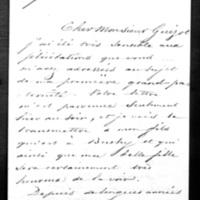 Cher Monsieur Guizot
j'ai été très sensible aux
félicitations que vous
m'avez adressées au sujet
de ma première grand-pa-
ternité. Votre lettre
m'est parvenue seulement
hier au soir, et je vais la
transmettre à mon fils
qui est à Bushy et qui
ainsi que ma belle fille
sera certainement très
heureux de la voir.
Depuis de longues années